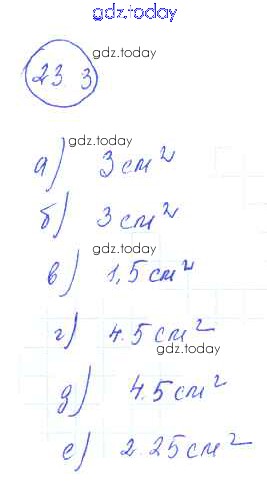 gdz.today
gdz.today
23 3
gdz.today
а) 3 см²
б) 3 см²
gdz.today
в) 1,5 см²
г) 4.5 см²
gdz.today
д) 4.5 см²
е) 2.25 см²
gdz.today